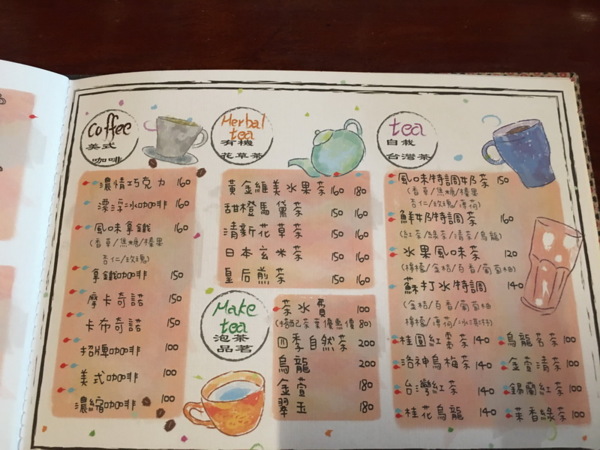 Coffee
美式
咖啡
濃情巧克力 160
漂浮冰咖啡 160
風味拿鐵 160
(香草/焦糖/榛果
杏仁/玫瑰)
拿鐵咖啡 150
摩卡奇諾 150
卡布奇諾 150
招牌咖啡 100
美式咖啡 100
濃縮咖啡 100
Herbal
tea
有機
花草茶
黃金維美水果茶 160 180
甜橙馬黛茶 150 160
清新花草茶 150 160
日本玄米茶 150 160
皇后煎茶 150 160
Make
tea
泡茶
品茗
茶水費 100
四季自然茶 200
烏龍 200
金萱 180
翠玉 180
tea
自栽
台灣茶
風味特調奶茶 150
(香草/焦糖/榛果
杏仁/玫瑰/薄荷)
鮮奶特調茶 160
(紅茶/綠茶/清茶/烏龍)
水果風味茶 120
(檸檬/金桔/百香/葡萄柚)
蘇打水特調 140
(金桔/百香/葡萄柚
檸檬/薄荷/
桂圓紅棗茶 140 烏龍茗茶 100
洛神烏梅茶 140 金萱清茶 100
台灣紅茶 140 錫蘭紅茶 100
桂花烏龍 140 茉香綠茶 100